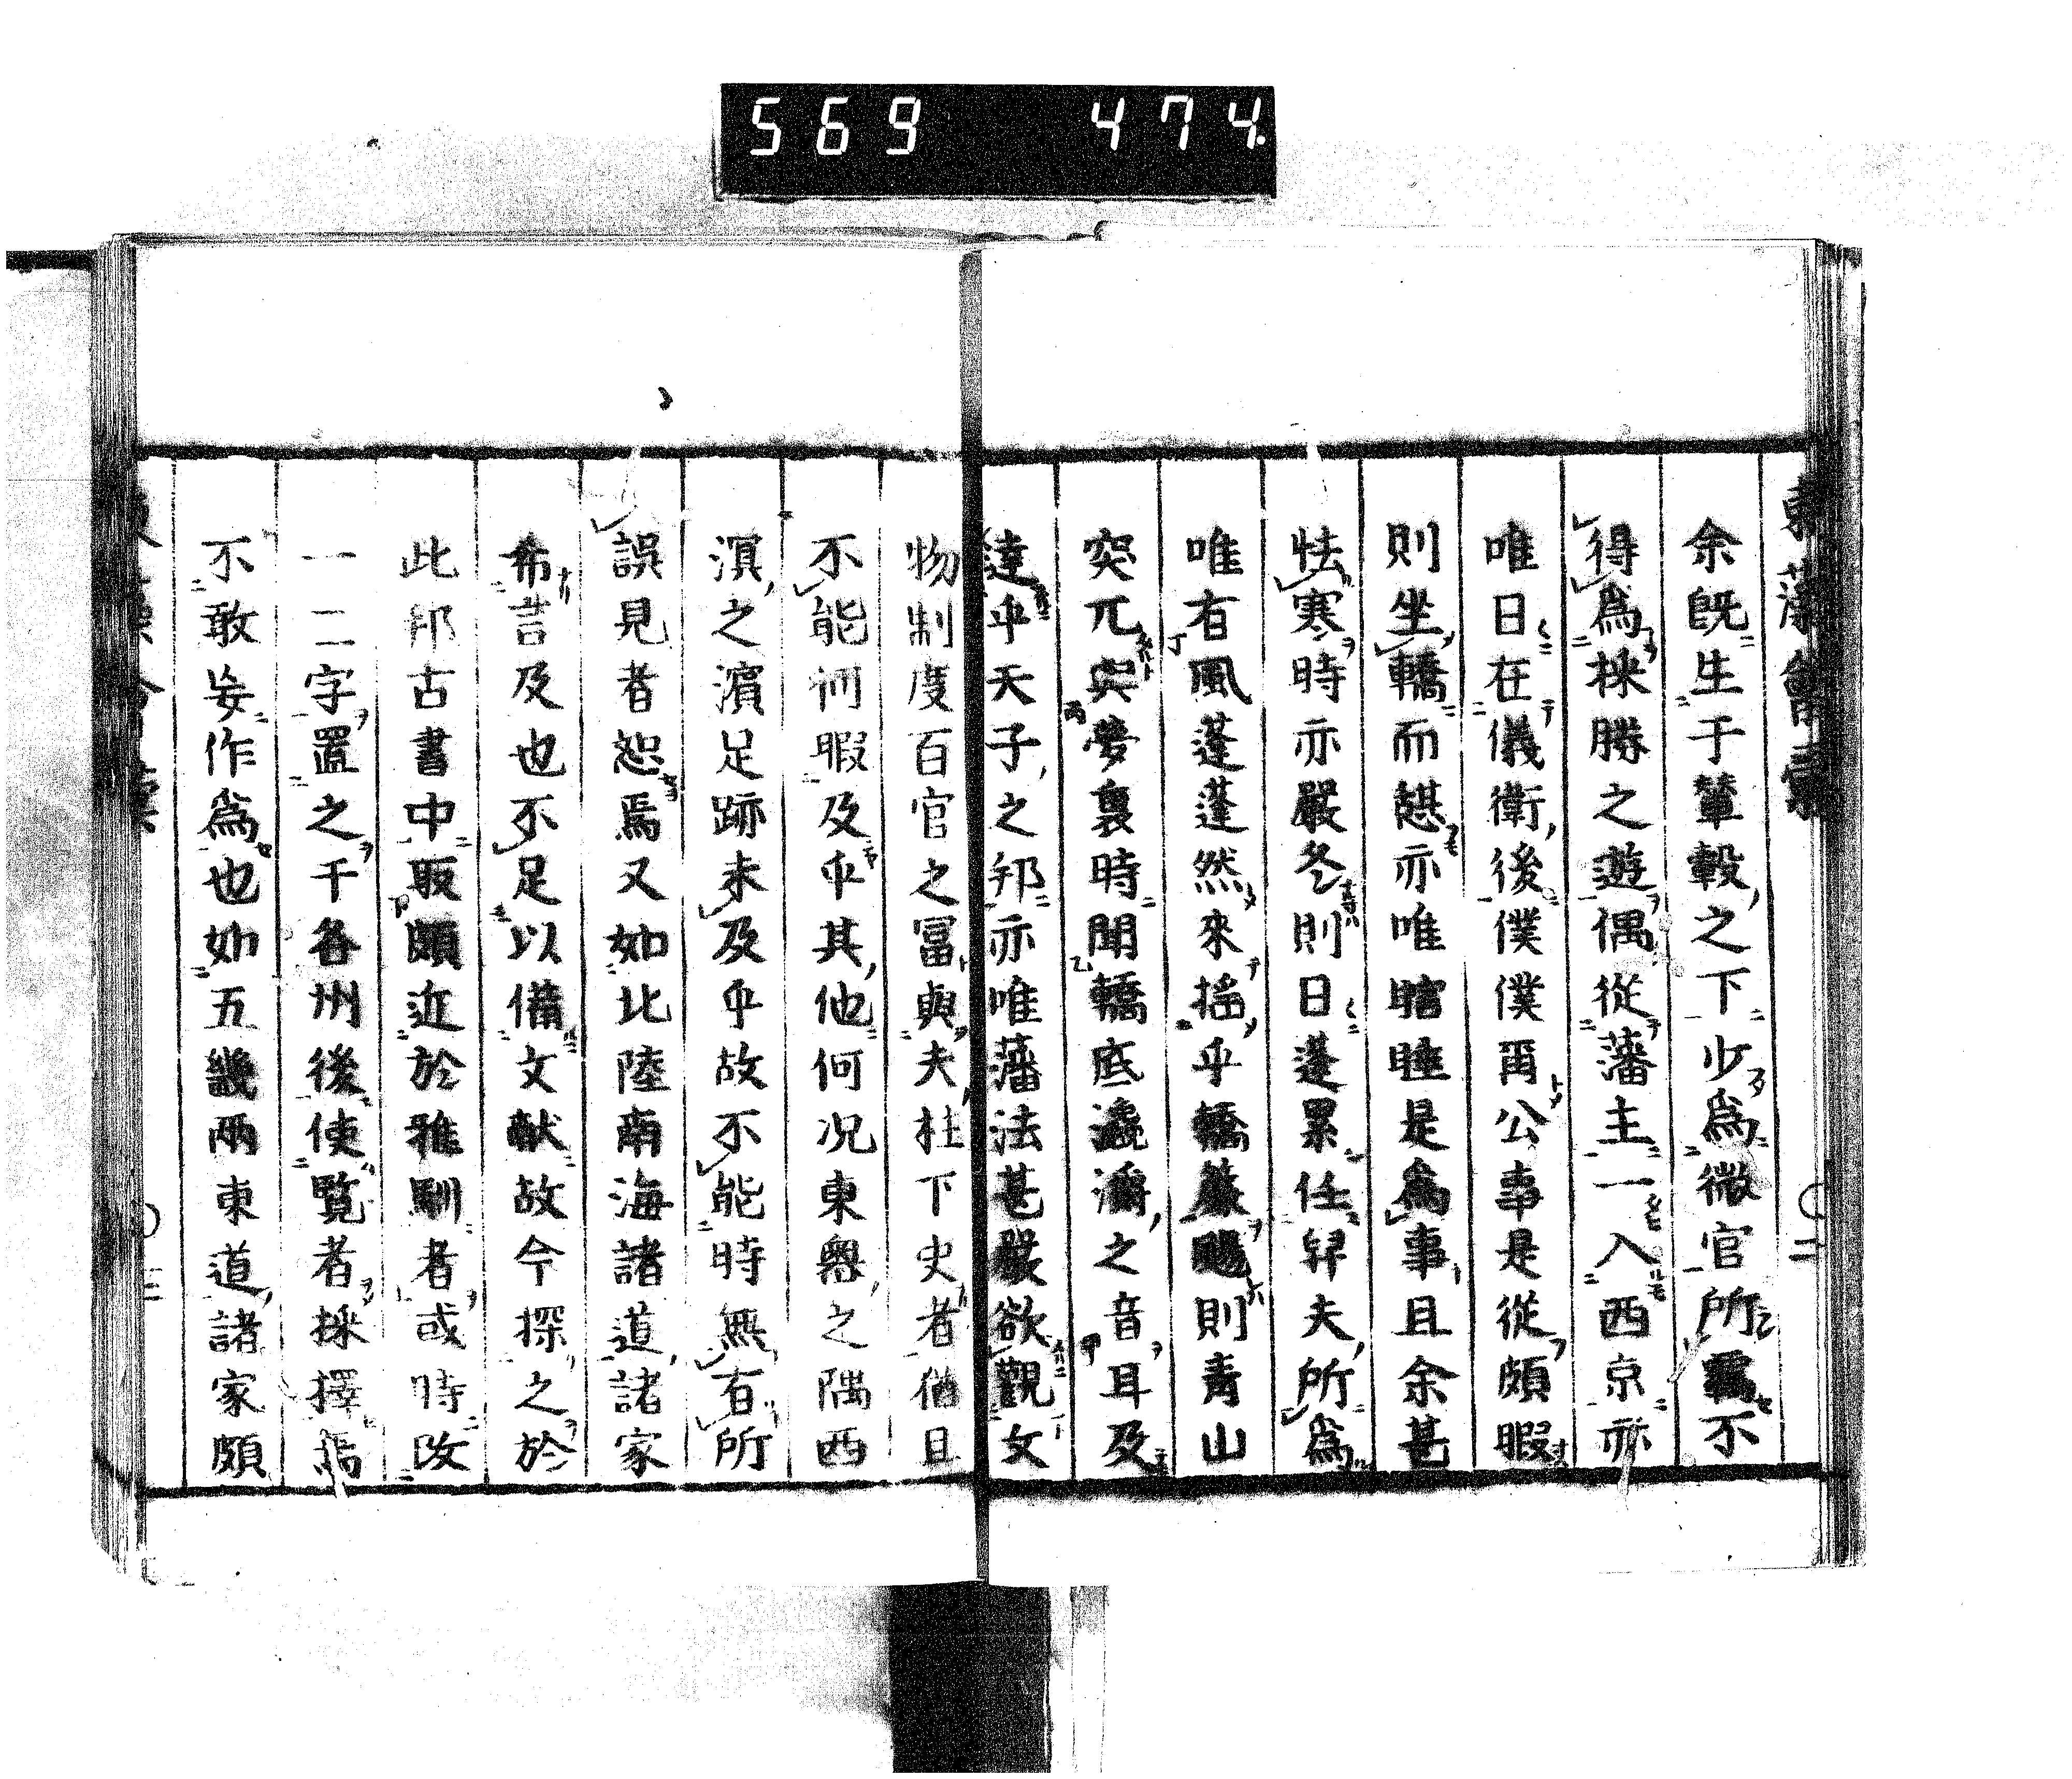 569 474
余既生于輦轂之下少爲微官所羈不
得爲採勝之遊偶從藩主一入西京亦
唯日在儀衛後僕僕爾公事是從頗暇
則坐轎而憇亦唯瞌睡是爲事且余甚
怯寒時亦嚴冬則日蓬累任舁夫所爲
唯有風蓬蓬然來搖乎轎簾颺則青山
突兀與夢裏時聞轎底潺湲之音耳及
達乎天子之邦亦唯藩法甚嚴欲觀文
物制度百官之冨與夫柱下史者猶且
不能何暇及乎其他何况東奥之隅西
溟之濱足跡未及乎故不能時無有所
誤見者恕焉又如北陸南海諸道諸家
希言及也不足以備文献故今探之於
此邦古書中取頗近於雅馴者或時改
一二字置之千各州後使覧者採擇焉
不敢妄作爲也如五畿兩東道諸家頗